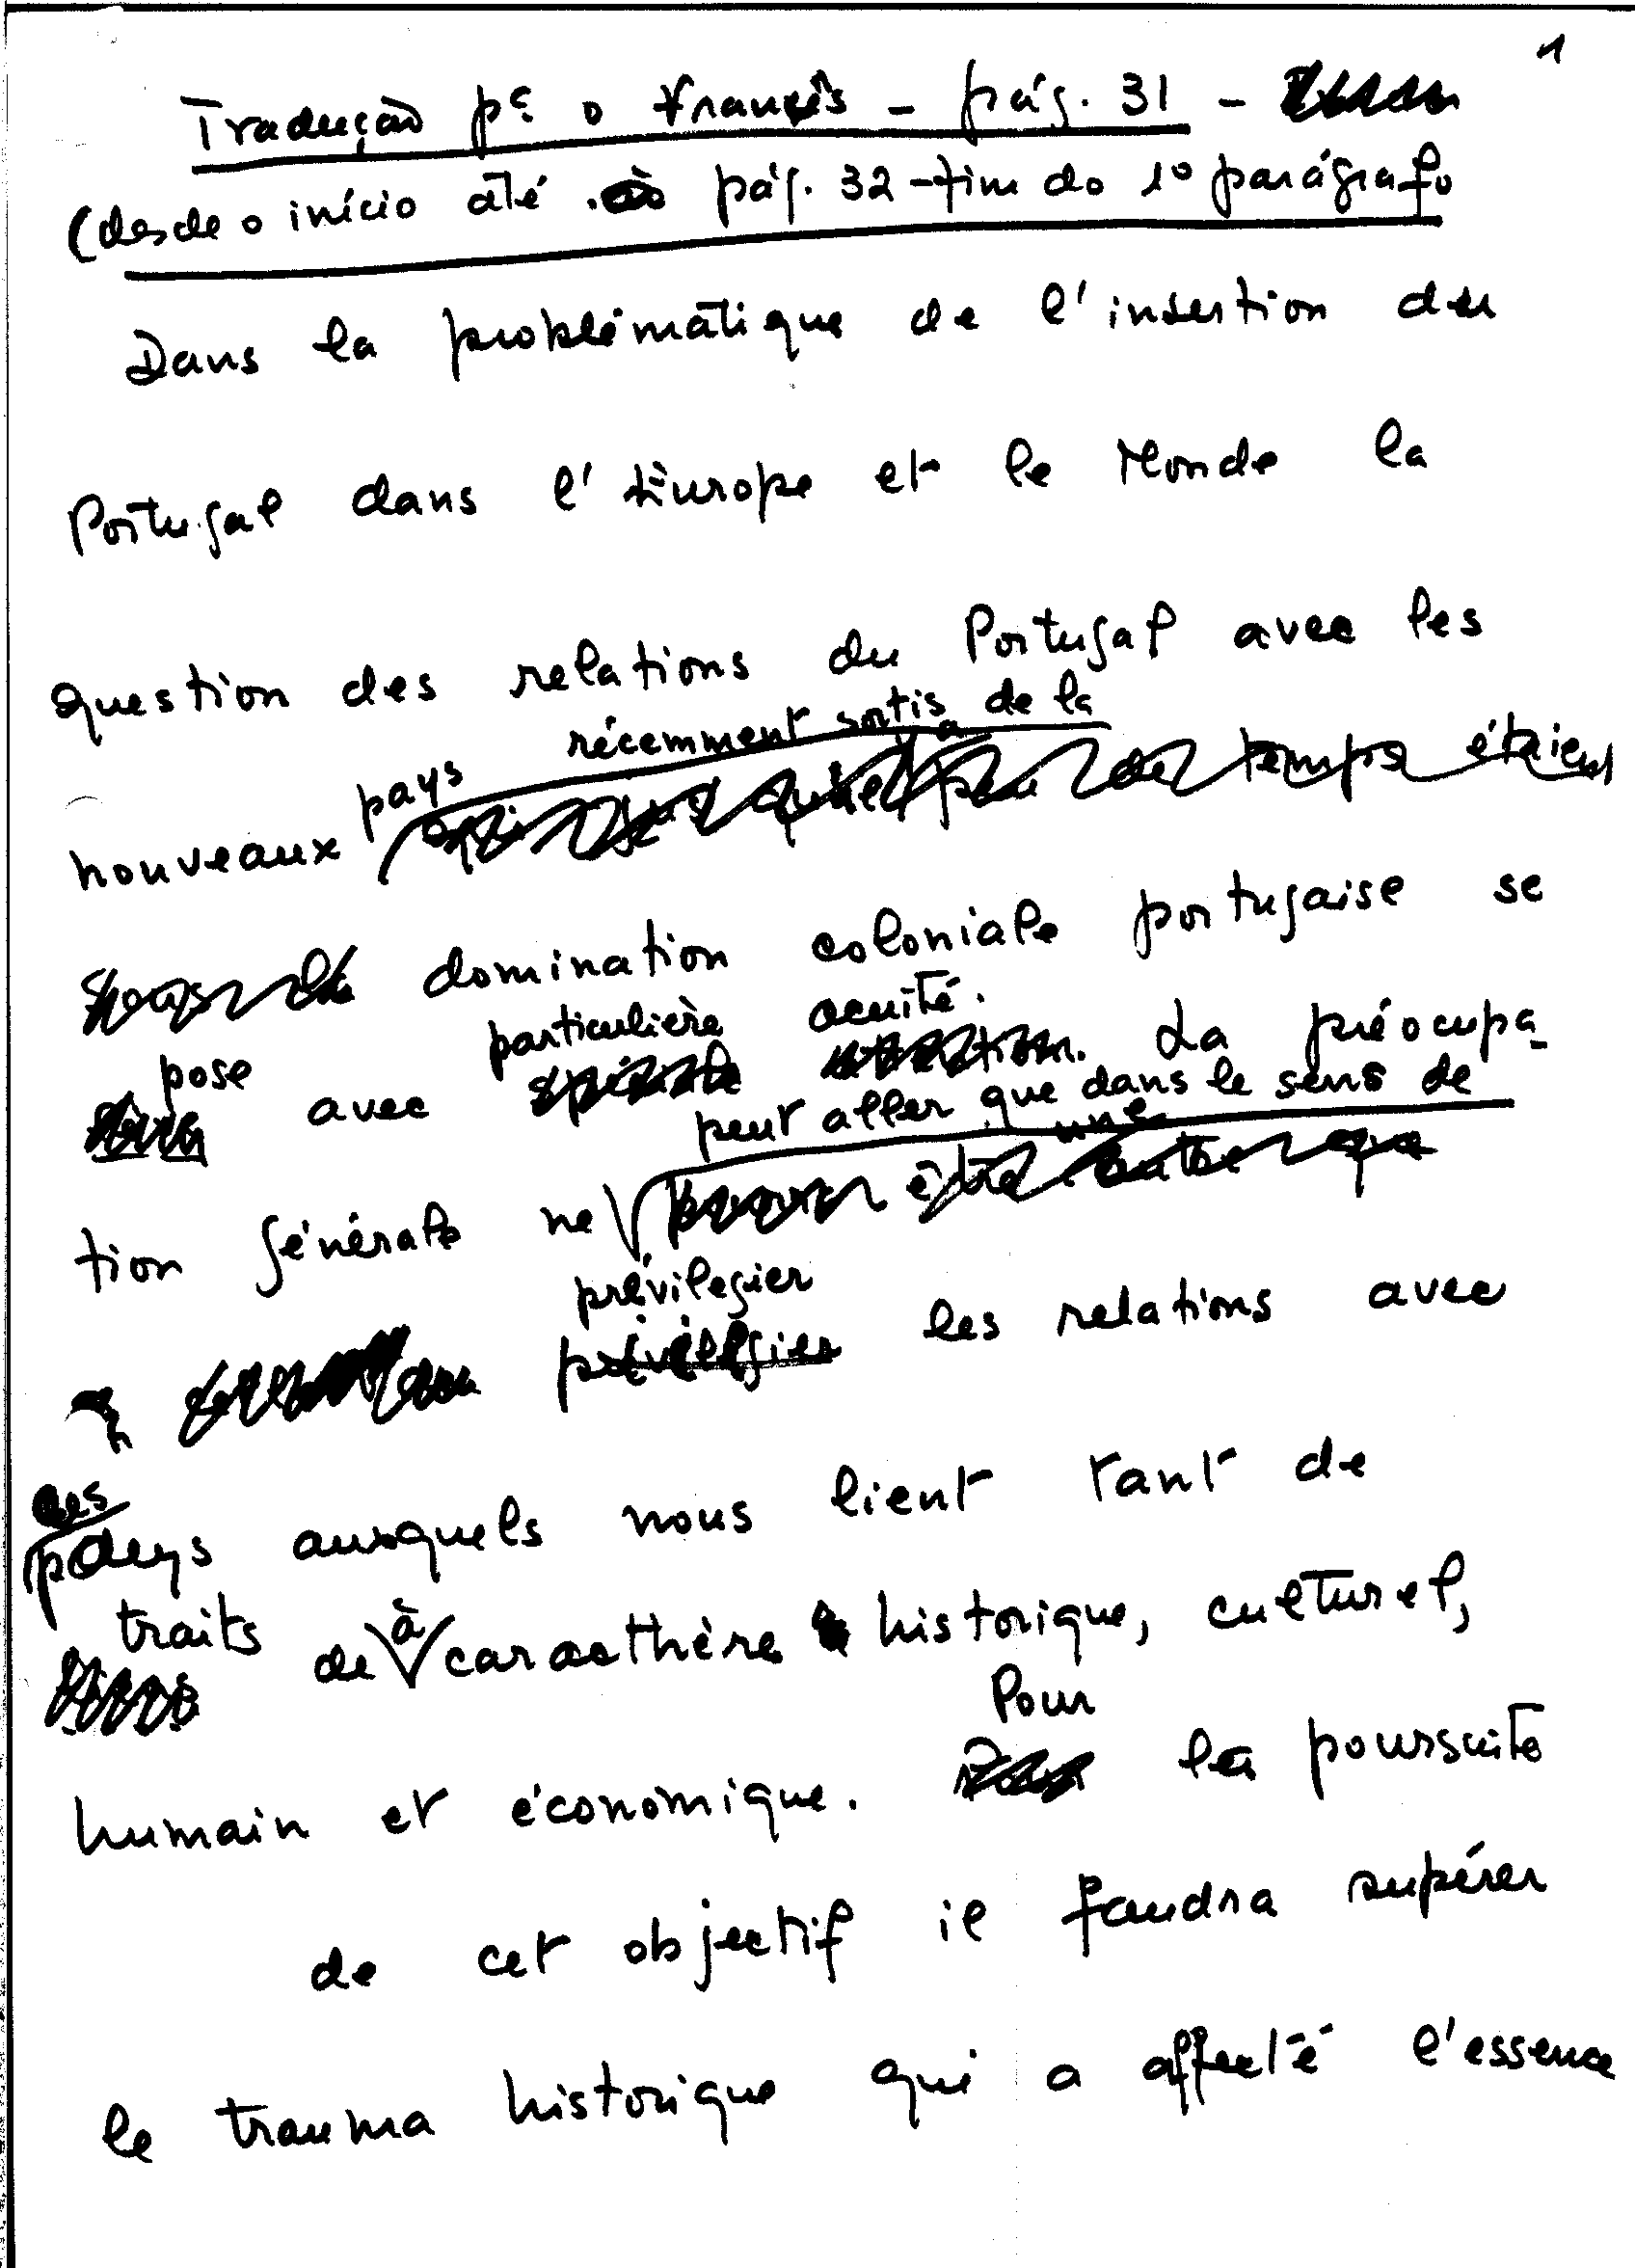 1
Tradução pª o francês - pág. 31 -
(desde o início até pág. 32 - fim do 1º parágrafo
Dans la problématique de l'insertion du
Portugal dans l'Europe et le Monde la
question des relations du Portugal avec les
récemment sortis de la
nouveaux pays
domination coloniale portugaise se
particulière acuité.
pose avec La préocupa-
peut aller que dans le sens de
tion générale ne
prévilegier
les relations avec
ces
pays auxquels nous lient tant de
traits de à caracthère historique, culturel,
Pour
humain et économique. la poursuite
de cet objectif il faudra supérer
le trauma historique qui a affecté l'essence